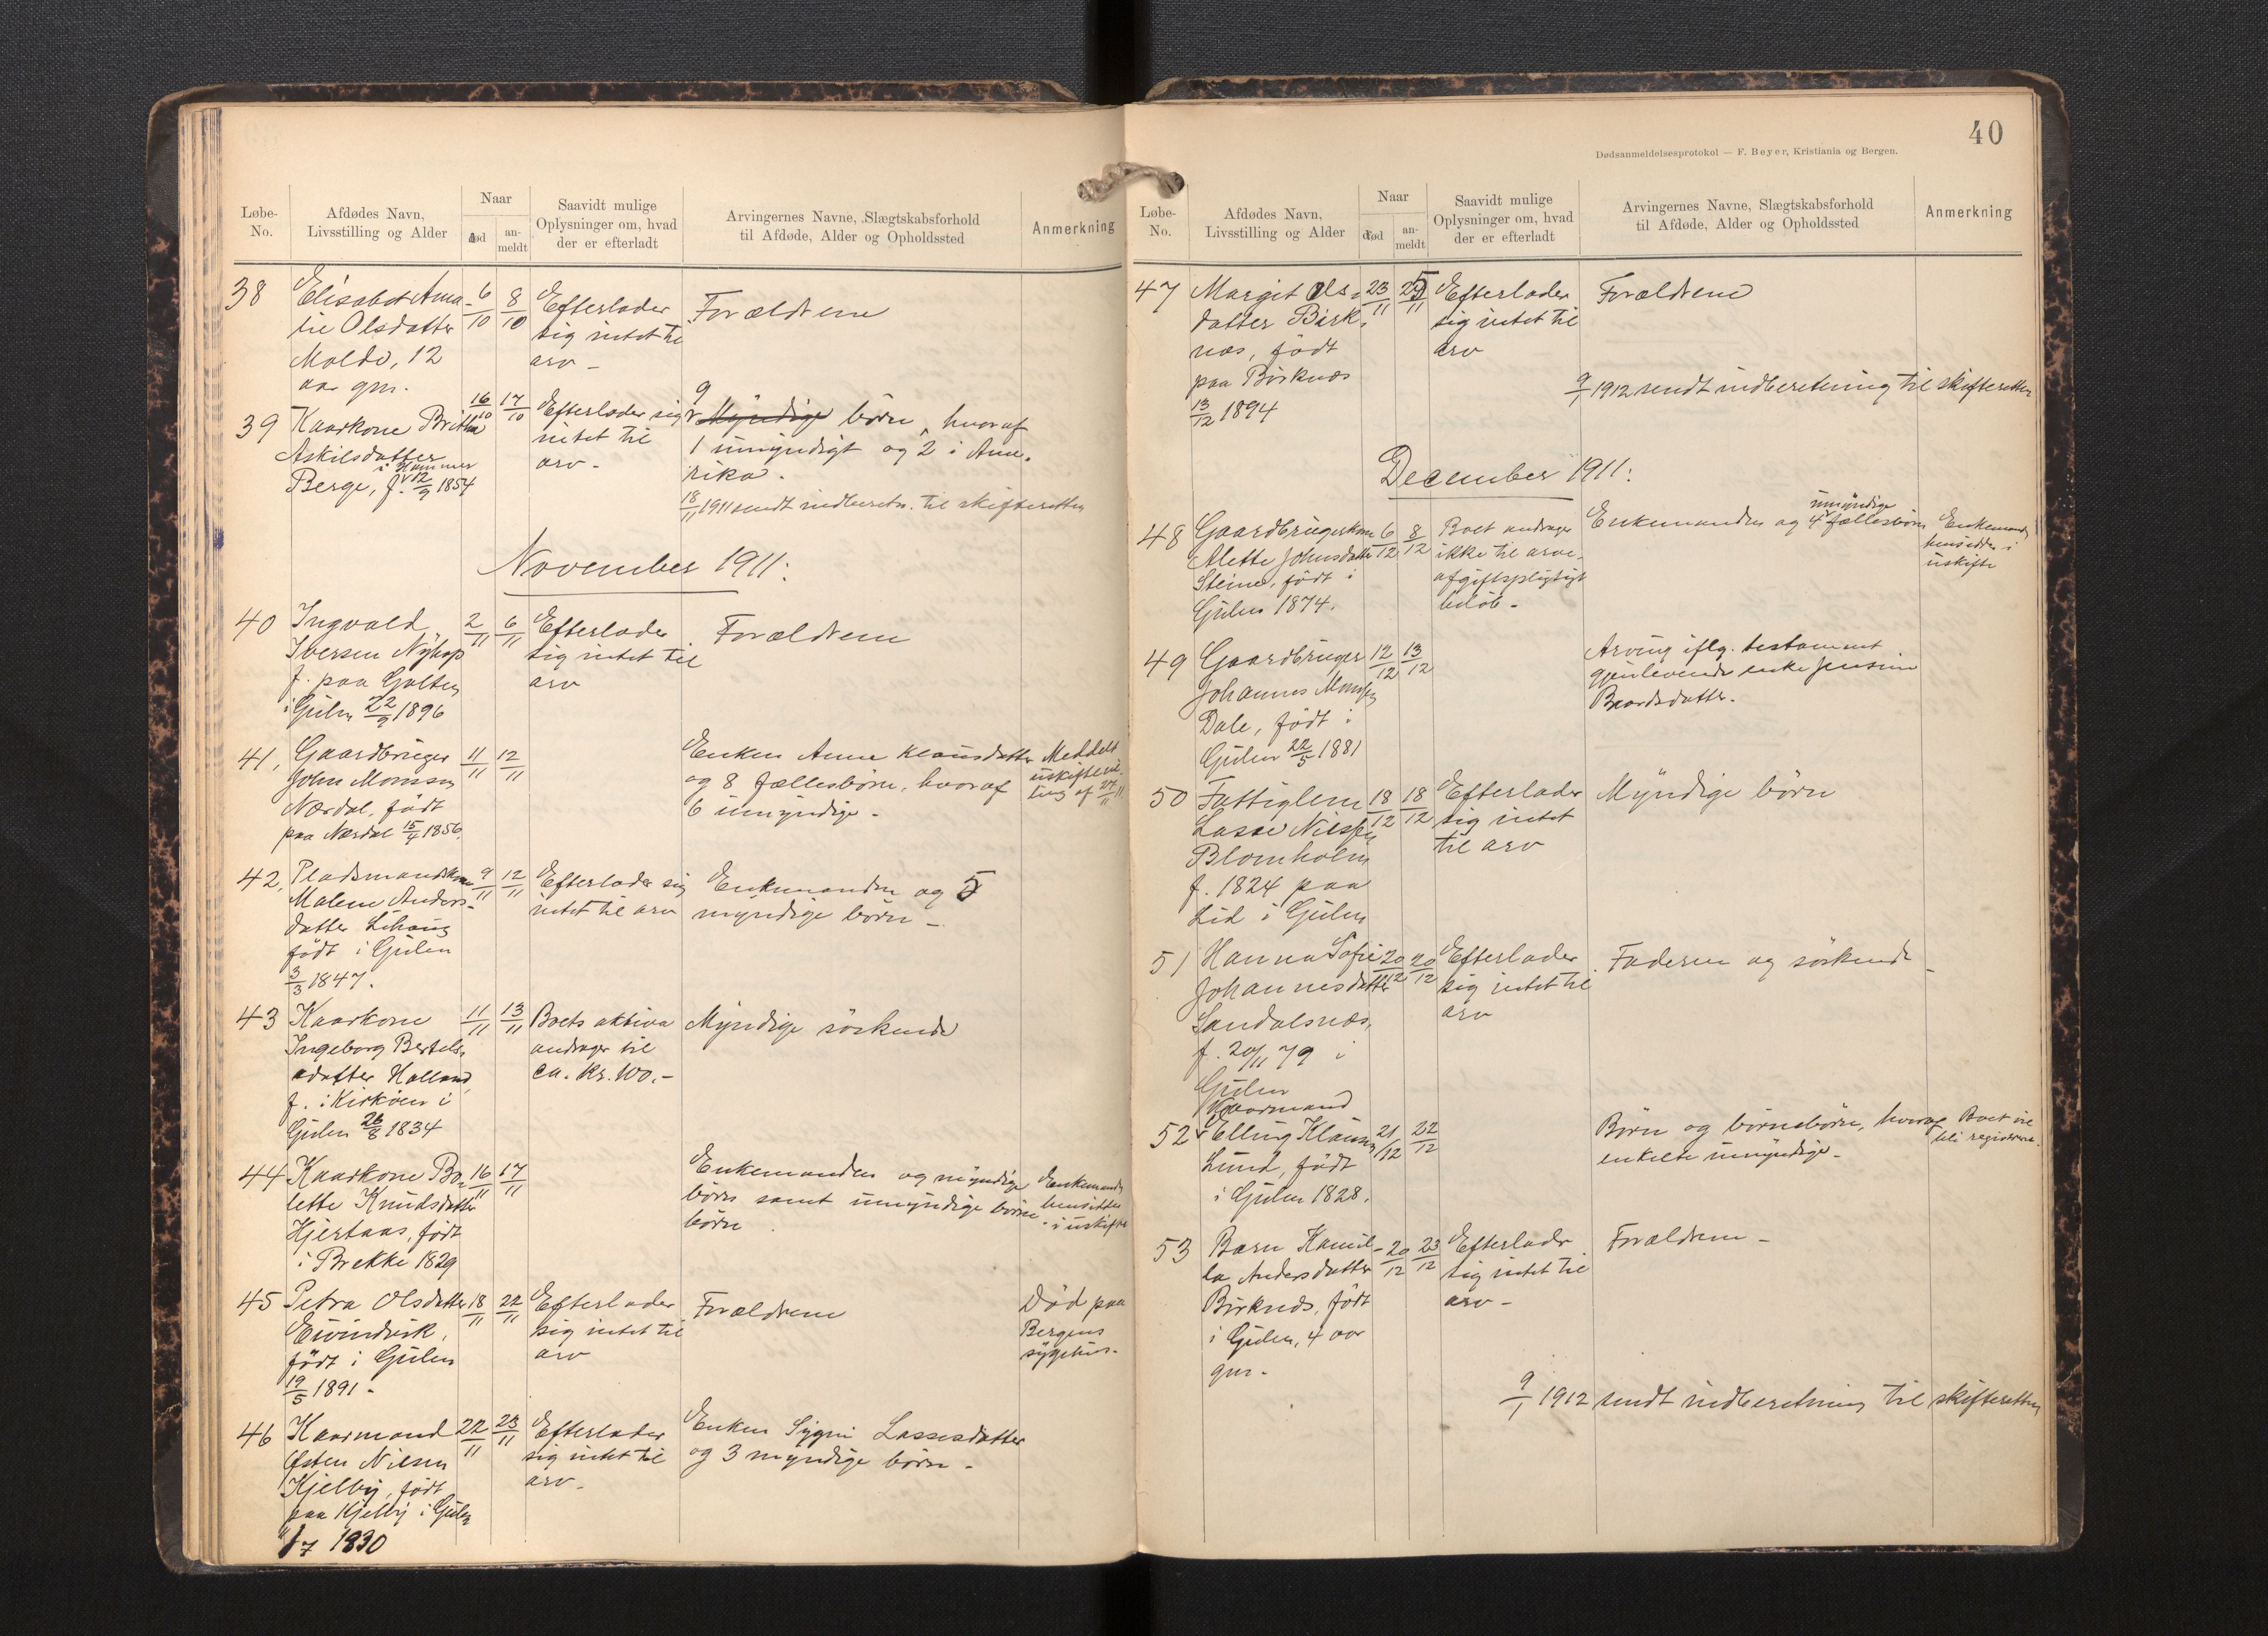 Løbe-
No.
Afdødes Navn,
Livsstilling og Alder
Naar
død
an-
meldt
Saavidt mulige
Oplysninger om, hvad
der er efterladt
Arvingernes Navne, Slægtskabsforhold
til Afdøde, Alder og Opholdssted
Anmerkning
38
Elisabet Ama-
lie Olsdatter
Molde, 12
aar gm.
6/10
8/10
Efterlader
sig intet til
arv -
Forældrene
39
Kaarkone Britha
Askilsdatter
i Hammer
Berge, f. 12/9 1854
16/10
17/10
Efterlader sig
intet til
arv -
9
Myndige børn, hvoraf
1 umyndigt og 2 i Ame-
rika.
18/11 1911 sendt indberetn. til skifteretten
November 1911:
40
Ingvald
Iversen Nyhop
f. paa Galten
i Gulen 22/9 1896
2/11
6/11
Efterlader
sig intet til
arv
Forældrene
41,
Gaardbruger
John Monsen
Nærdal, født
paa Nærdal 15/4 1856.
11/11
12/11
Enken Anne Klausdatter
og 8 fællesbørn, hvoraf
6 umyndige -
Meddelt
uskiftevil-
ling af 27/11 11.
42,
Pladsmandskone
Malene Anders-
datter Lihaug
født i Gulen
3/3 1847.
9/11
12/11
Efterlader sig
intet til arv
Enkemanden og 5
myndige børn -
43
Kaarkone
Ingeborg Bertels-
datter Halland,
f. i Kirkøen i
Gulen 26/8 1834
11/11
13/11
Boets aktiva
andrager til
ca. kr. 100.-
Myndige søskende
44
Kaarkone Bo-
lette Knudsdatter
Hjertaas, født
i Brekke 1829
16/11
17/11
Enkemanden og myndige
børn samt umyndige børne-
børn
Enkemanden
hensidder
i uskifte
45
Petra Olsdatter
Eivindvik,
født i Gulen
19/5 1891 -
18/11
22/11
Efterlader
sig intet til
arv
Forældrene
Død paa
Bergens
sygehus-
46
Kaarmand
Østen Nilsen
Kjelby, født
paa Kjelby i Gulen
7 1830
22/11
23/11
Efterlader
sig intet til
arv -
Enken Sygni Lassesdatter
og 3 myndige børn -
40
Dødsanmeldelsesprotokol — F. Beyer, Kristiania og Bergen.
Løbe-
No.
Afdødes Navn,
Livsstilling og Alder
Naar
død
an-
meldt
Saavidt mulige
Oplysninger om, hvad
der er efterladt
Arvingernes Navne, Slægtskabsforhold
til Afdøde, Alder og Opholdssted
Anmerkning
47
Margit Ols-
datter Birk-
næs, født
paa Birknæs
13/12 1894
23/11
25/11
Efterlader
sig intet til
arv
Forældrene
9/1 1912 sendt indberetning til skifteretten
December 1911:
48
Gaardbrugerkone
Alette Johnsdatter
Steine, født i
Gulen 1874.
6/12
8/12
Boet andrager
ikke til arve-
afgiftspligtigt
beløb -
umyndige
Enkemanden og 4 fællesbørn
Enkemanden
hensidder i
uskifte
49
Gaardbruger
Johannes Monsen
Dale, født i
Gulen 22/5 1881
12/12
13/12
Arving iflg. testament
gjenlevende enke Jensine
Baardsdatter.
50
Fattiglem
Lasse Nilsen
Blomholm
f. 1824 paa
Lid i Gulen
18/12
18/12
Efterlader
sig intet
til arv
Myndige børn
51
Hanna Sofie
Johannesdatter
Sandalsnæs,
f. 20/11 79 i
Gulen
20/12
20/12
Efterlader
sig intet til
arv
Faderen og søskende -
52
Kaarmand
Elling Klausen
Lund, født
i Gulen 1828.
21/12
22/12
Børn og børnebørn, hvoraf
enkelte umyndige -
Boet vil
bli registrert.
53
Barn Kamil-
la Andersdatter
Birknæs, født
i Gulen, 4 aar
gm -
20/12
23/12
Efterlader
sig intet til
arv -
Forældrene -
9/1 1912 sendt indberetning til skifteretten